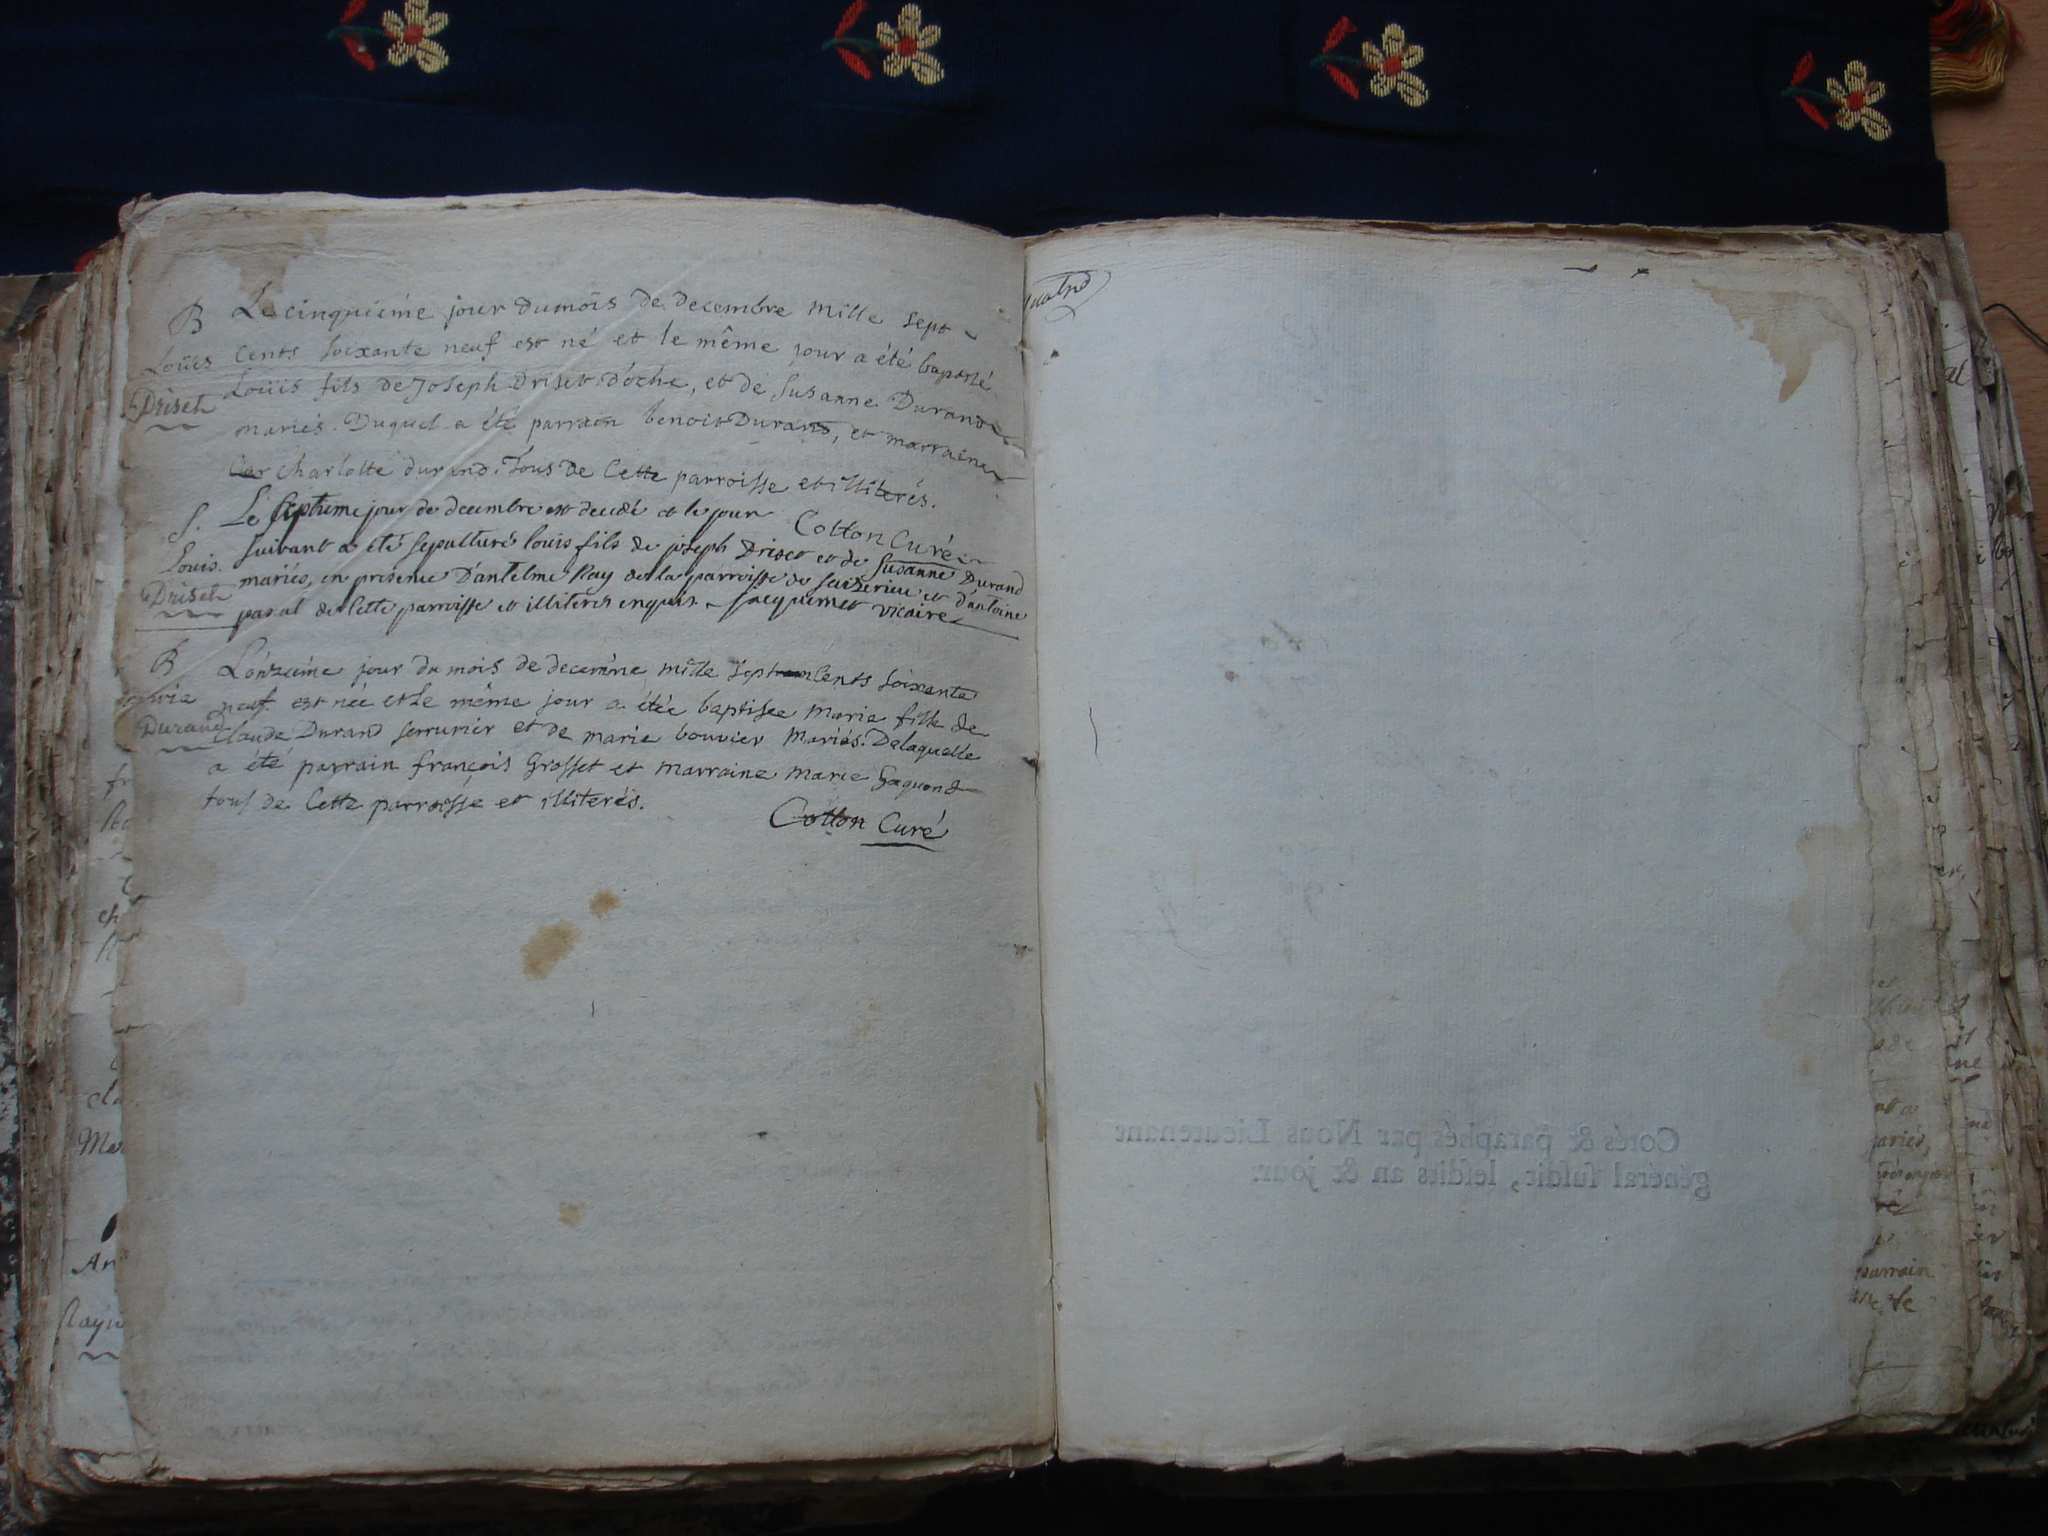 B Le cinquiéme jour du mois de decembre mille sept
Loüis cents soixante neuf est né et le même jour a été baptisé
Driset Loüis fils de Joseph Driset d'oche, et de Susanne Durand
mariés. Duquel a été parrain benoit Durand, et marraine
Charlotte durand. Tous de Cette parroisse et illiterés.
Cotton Curé
S. Le septieme jour de decembre est decedé et le jour
Louis suivant a eté sepulturé louis fils de joseph Driset et de Susanne Durand
Driset mariés, en presence D'antelme Ray de la parroisse de et d'antoine
pascal de Cette parroisse et illiteres enquis. Jacquemet vicaire
B L'onzieme jour du mois de decembre mille Sept Cents soixante
Marie neuf est née et le même jour a étée baptisée Marie fille de
Durand Claude Durand serrurier et de marie bouvier Mariés. Delaquelle
a été parrain françois Grosset et Marraine Marie
tous de Cette parroisse et illiterés.
Cotton Curé
Cotés & paraphés par Nous Lieutenant
général susdit, lesdits an & jour.